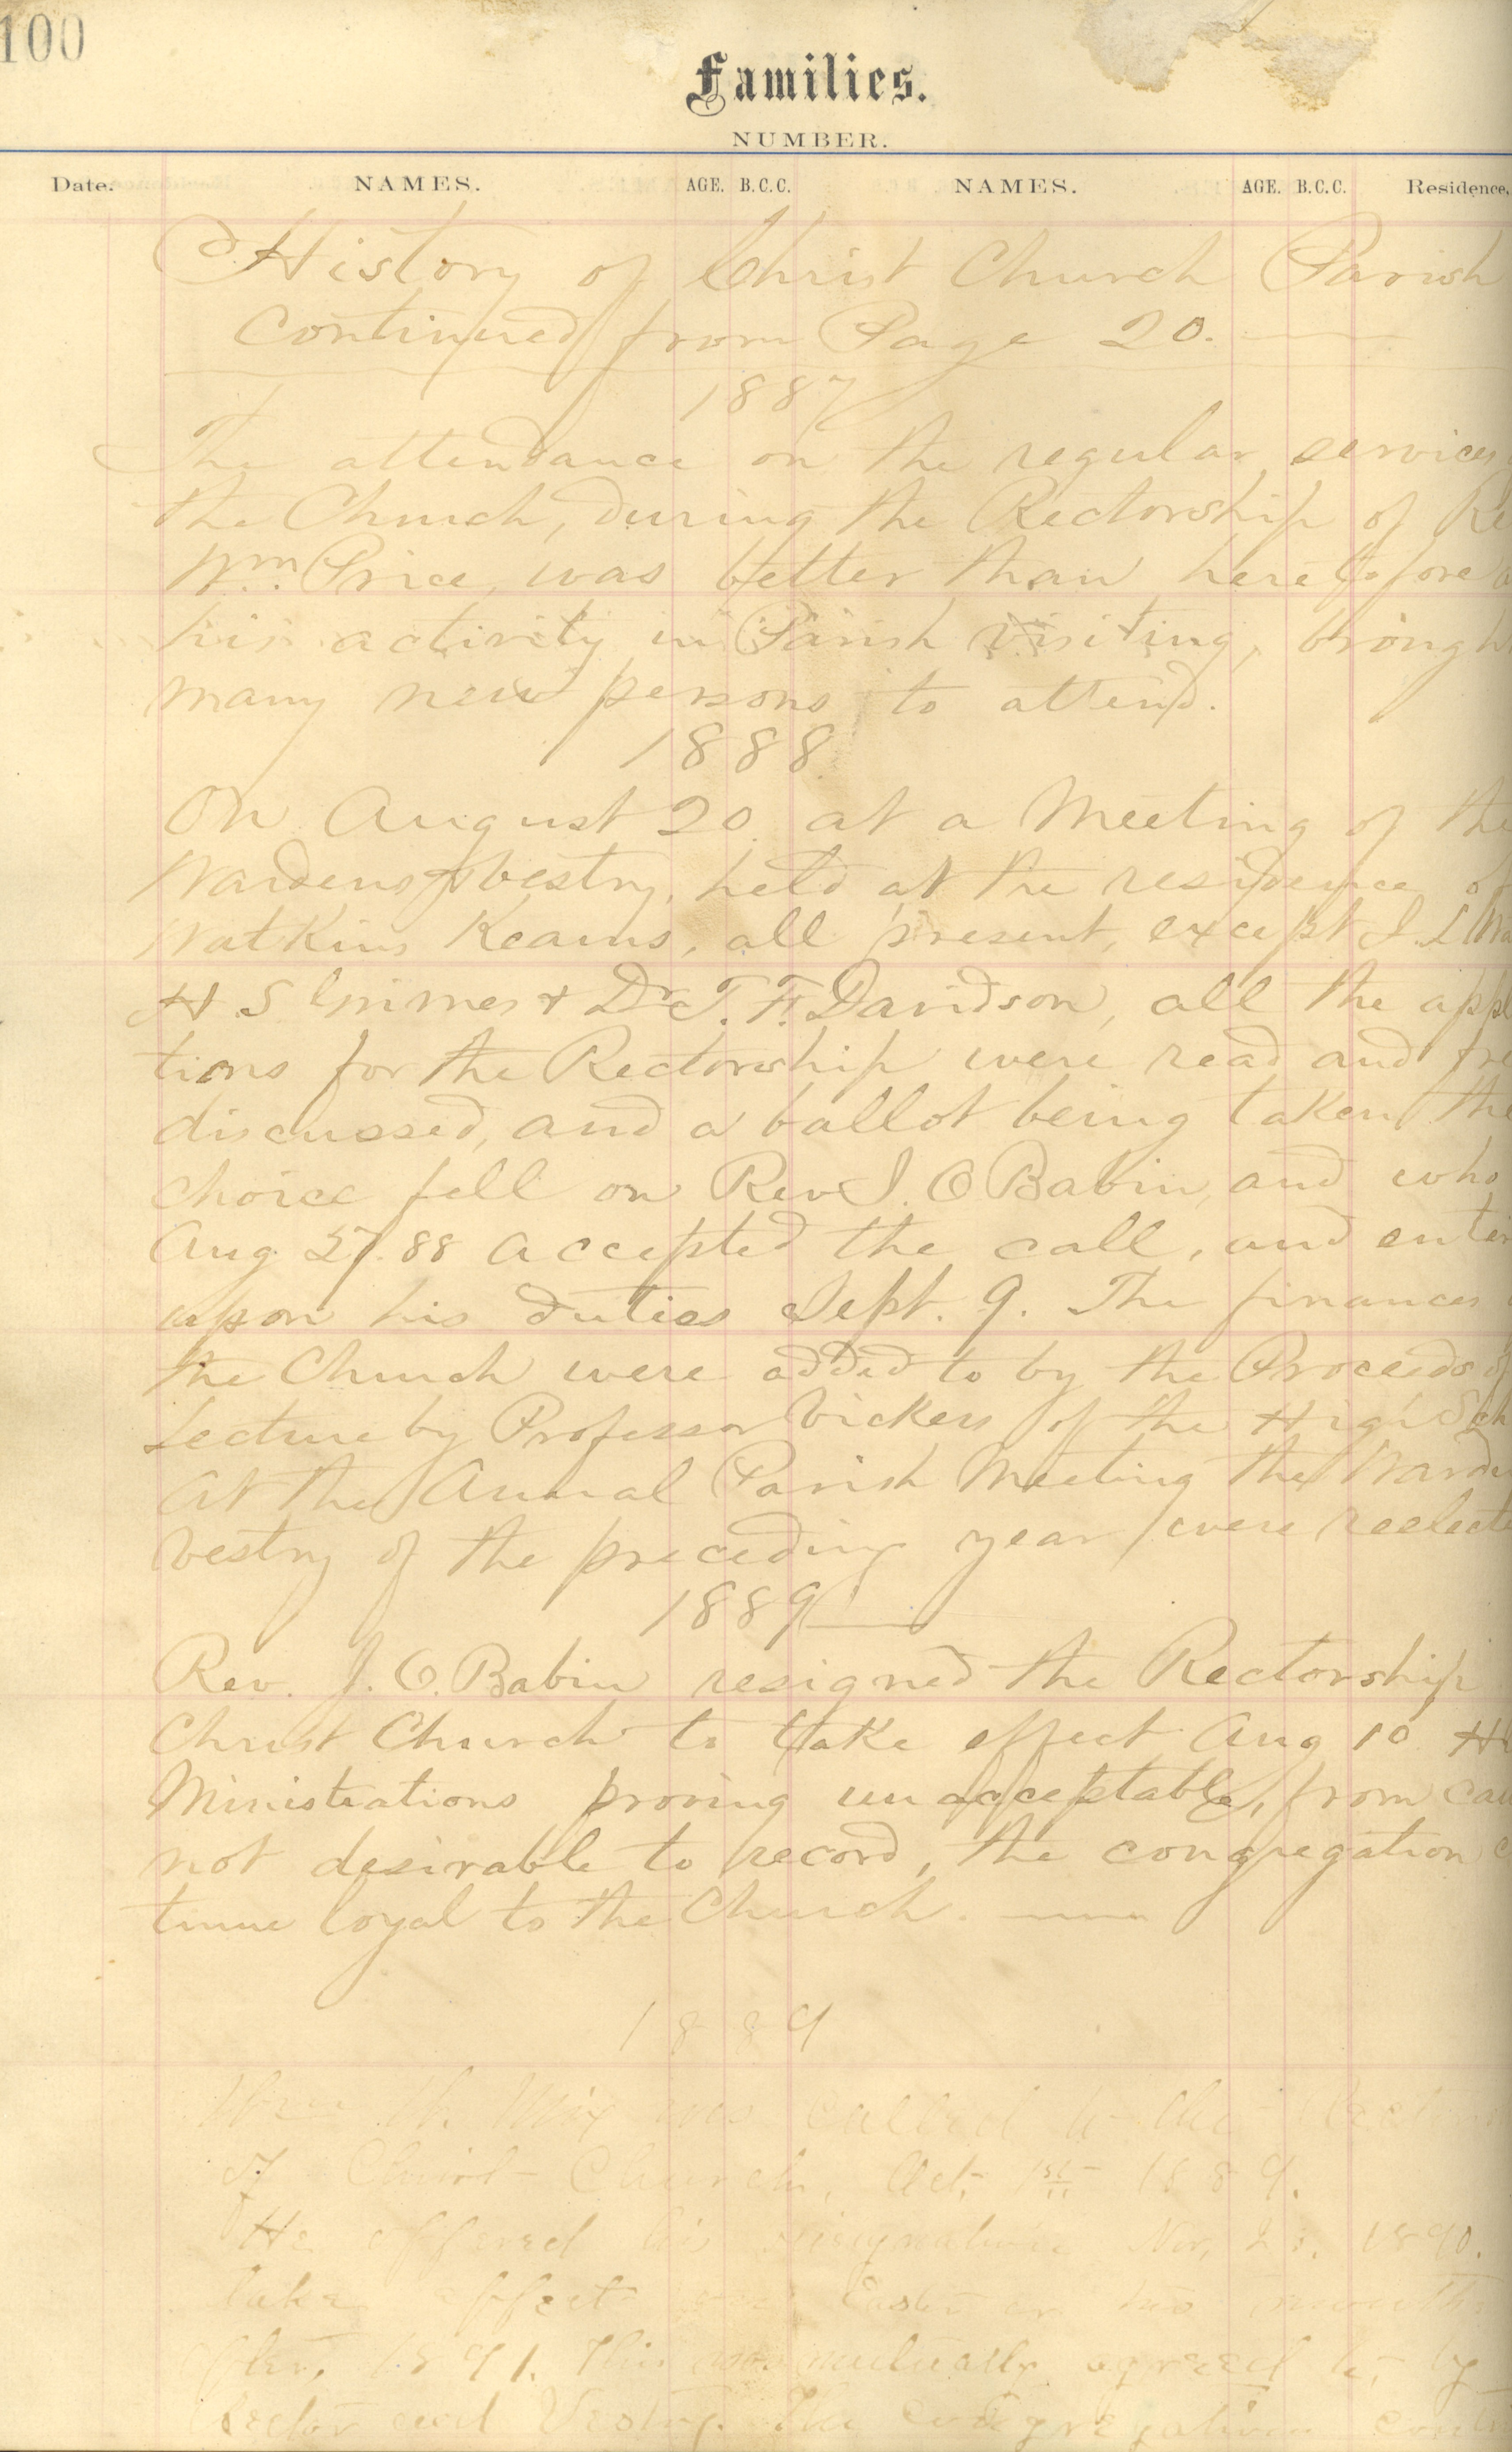 100
Families.
NUMBER.
Date. NAMES. AGE. B.C.C. NAMES. AGE. B.C.C. Residence,
History of Christ Church Parish
Continued from Page 20.
1887
The attendance on the regular services
the Church, during the Rectorship of Re
Wm. Price, was better than heretofore
his activity in Parish visiting, brough
many new persons to attend.
1888
On August 20 at a Meeting of the
Wardens & Vestry, held at the residence of
Watkins Kearns, all present, except
H S Grimes & Dr T. F. Davidson, all the appl
tions for the Rectorship were read and fre
discussed, and a ballot being taken the
choice fell on Rev J. O Babin, and who
Aug 27. 88 accepted the call, and enter
upon his duties Sept. 9. The finances
the Church were added to by the Proceeds of
Lecture by Professor Vickers of the High Sch
At the Annual Parish Meeting the Warde
Vestry of the preceding year were reelecte
1889
Rev. J. O. Babin resigned the Rectorship
Christ Church to take effect Aug 10 Hi
Ministrations proving unacceptable, from cau
not desirable to record, the congregation c
tinue loyal to the Church.
1889
was called to the
of Christ Church, Oct. 1st 1889.
He offered his resignation Nov. 1890.
take effect Easter or two months
after, 1891. This was mutually agreed to by
Rector and Vestry. The congregation